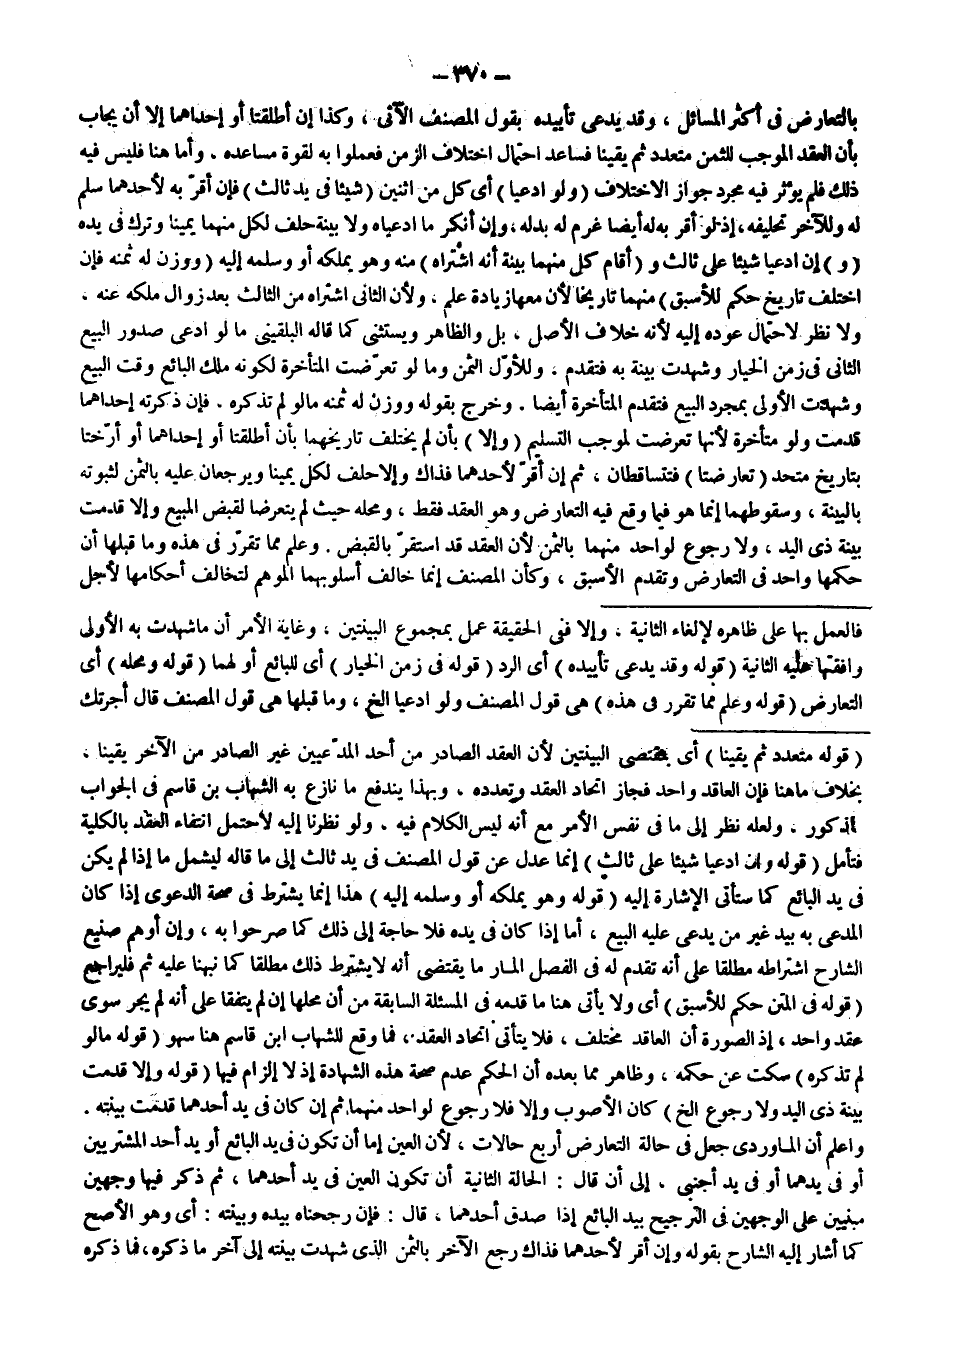 — ٣٧٠ —
بالتعارض فى أكثر المسائل ، وقد يدعى تأييده بقول المصنف الآتى ، وكذا إن أطلقتا أو إحداهما إلا أن يجاب
بأن العقد الموجب للثمن متعدد ثم يقينا فساعد احتمال اختلاف الزمن فعملوا به لقوة مساعده . وأما هنا فليس فيه
ذلك فلم يؤثر فيه مجرد جواز الاختلاف ( ولو ادعيا ) أى كل من اثنين ( شيئا فى يد ثالث ) فإن أقرّ به لأحدهما سلم
له وللآخر تحليفه ، إذ لو أقر به له أيضا غرم له بدله ، وإن أنكر ما ادعياه ولا بينة حلف لكل منهما يمينا وترك فى يده
( و ) إن ادعيا شيئا على ثالث و ( أقام كل منهما بينة أنه اشتراه ) منه وهو يملكه أو وسلمه إليه ( ووزن له ثمنه فإن
اختلف تاريخ حكم للأسبق ) منهما تاريخا لأن معها زيادة علم ، ولأن الثانى اشتراه من الثالث بعد زوال ملكه عنه ،
ولا نظر لاحتمال عوده إليه لأنه خلاف الأصل ، بل والظاهر ويستثنى كما قاله البلقينى ما لو ادعى صدور البيع
الثانى فى زمن الخيار وشهدت بينة به فتقدم ، وللأوّل الثمن وما لو تعرّضت المتأخرة لكونه ملك البائع وقت البيع
وشهدت الأولى بمجرد البيع فتقدم المتأخرة أيضا . وخرج بقوله ووزن له ثمنه مالو لم تذكره . فإن ذكرته إحداهما
قدمت ولو متأخرة لأنها تعرضت لموجب التسليم ( وإلا ) بأن لم يختلف تاريخهما بأن أطلقتا أو إحداهما أو أرّختا
بتاريخ متحد ( تعارضتا ) فتتساقطان ، ثم إن أقرّ لأحدهما فذاك وإلا حلف لكل يمينا ويرجعان عليه بالثمن لثبوته
بالبينة ، وسقوطهما إنما هو فيما وقع فيه التعارض وهو العقد فقط ، ومحله حيث لم يتعرضا لقبض المبيع وإلا قدمت
بينة ذى اليد ، ولا رجوع لواحد منهما بالثمن لأن العقد قد استقرّ بالقبض . وعلم مما تقرّر فى هذه وما قبلها أن
حكمها واحد فى التعارض وتقدم الأسبق ، وكأن المصنف إنما خالف أسلوبهما الموهم لتخالف أحكامها لأجل
فالعمل بها على ظاهره لإلغاء الثانية ، وإلا ففى الحقيقة عمل بمجموع البينتين ، وغاية الأمر أن ماشهدت به الأولى
وافقتها عليه الثانية ( قوله وقد يدعى تأييده ) أى الرد ( قوله فى زمن الخيار ) أى للبائع أو لهما ( قوله ومحله ) أى
التعارض ( قوله وعلم مما تقرر فى هذه ) هى قول المصنف ولو ادعيا الخ ، وما قبلها هى قول المصنف قال أجرتك
( قوله متعدد ثم يقينا ) أى بمقتضى البينتين لأن العقد الصادر من أحد المدّعيين غير الصادر من الآخر يقينا ،
بخلاف ماهنا فإن العاقد واحد فجاز اتحاد العقد وتعدده . وبهذا يندفع ما نازع به الشهاب بن قاسم فى الجواب
المذكور ، ولعله نظر إلى ما فى نفس الأمر مع أنه ليس الكلام فيه . ولو نظرنا إليه لأحتمل انتفاء العقد بالكلية
فتأمل ( قوله وإن ادعيا شيئا على ثالث ) إنما عدل عن قول المصنف فى يد ثالث إلى ما قاله ليشمل ما إذا لم يكن
فى يد البائع كما ستأتى الإشارة إليه ( قوله وهو يملكه أو وسلمه إليه ) هذا إنما يشترط فى صحة الدعوى إذا كان
المدعى به بيد غير من يدعى عليه البيع ، أما إذا كان فى يده فلا حاجة إلى ذلك كما صرحوا به ، وإن أوهم صنيع
الشارح اشتراطه مطلقا على أنه تقدم له فى الفصل المار ما يقتضى أنه لايشترط ذلك مطلقا كما نبهنا عليه ثم فليراجع
( قوله فى المتن حكم للأسبق ) أى ولا يأتى هنا ما قدمه فى المسئلة السابقة من أن محلها إن لم يتفقا على أنه لم يجر سوى
عقد واحد ، إذ الصورة أن العاقد مختلف ، فلا يتأتى اتحاد العقد ، فما وقع للشهاب ابن قاسم هنا سهو ( قوله مالو
لم تذكره ) سكت عن حكمه ، وظاهر مما بعده أن الحكم عدم صحة هذه الشهادة إذ لا إلزام فيها ( قوله وإلا قدمت
بينة ذى اليد ولا رجوع الخ ) كان الأصوب وإلا فلا رجوع لواحد منهما ، ثم إن كان فى يد أحدهما قدمت بينته .
واعلم أن الماوردى جعل فى حالة التعارض أربع حالات ، لأن العين إما أن تكون فى يد البائع أو يد أحد المشتريين
أو فى يدهما أو فى يد أجنبى . إلى أن قال : الحالة الثانية أن تكون العين فى يد أحدهما ، ثم ذكر فيها وجهين
مبنيين على الوجهين فى الترجيح بيد البائع إذا صدق أحدهما ، قال : فإن رجحناه بيده وبينته : أى وهو الأصح
كما أشار إليه الشارح بقوله وإن أقر لأحدهما فذاك رجع الآخر بالثمن الذى شهدت بينته إلى آخر ما ذكره ، فما ذكره